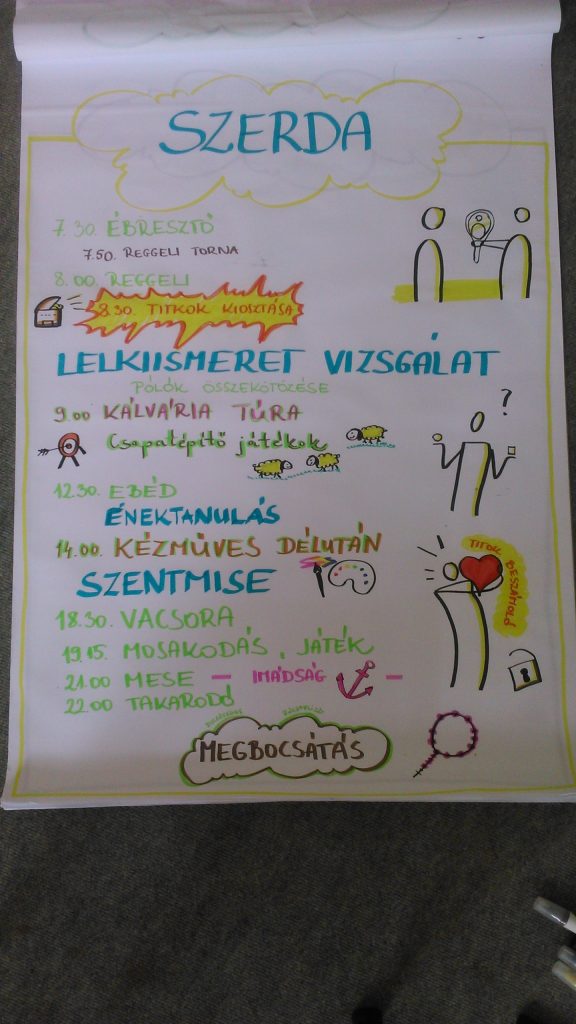 SZERDA
7.30. ÉBRESZTŐ
7.50. REGGELI TORNA
8.00. REGGELI
8.30. TITKOK KIOSZTÁSA
LELKIISMERET VIZSGÁLAT
PÓLÓK ÖSSZEKÖTÖZÉSE
9.00 KÁLVÁRIA TÚRA
Csapatépítő játékok
?
12.30. EBÉD
ÉNEKTANULÁS
14.00. KÉZMŰVES DÉLUTÁN
TITOK BESZÁMOLÓ
SZENTMISE
18.30. VACSORA
19.15. MOSAKODÁS, JÁTÉK
21.00 MESE – IMÁDSÁG –
22.00 TAKARODÓ
MEGBOCSÁTÁS